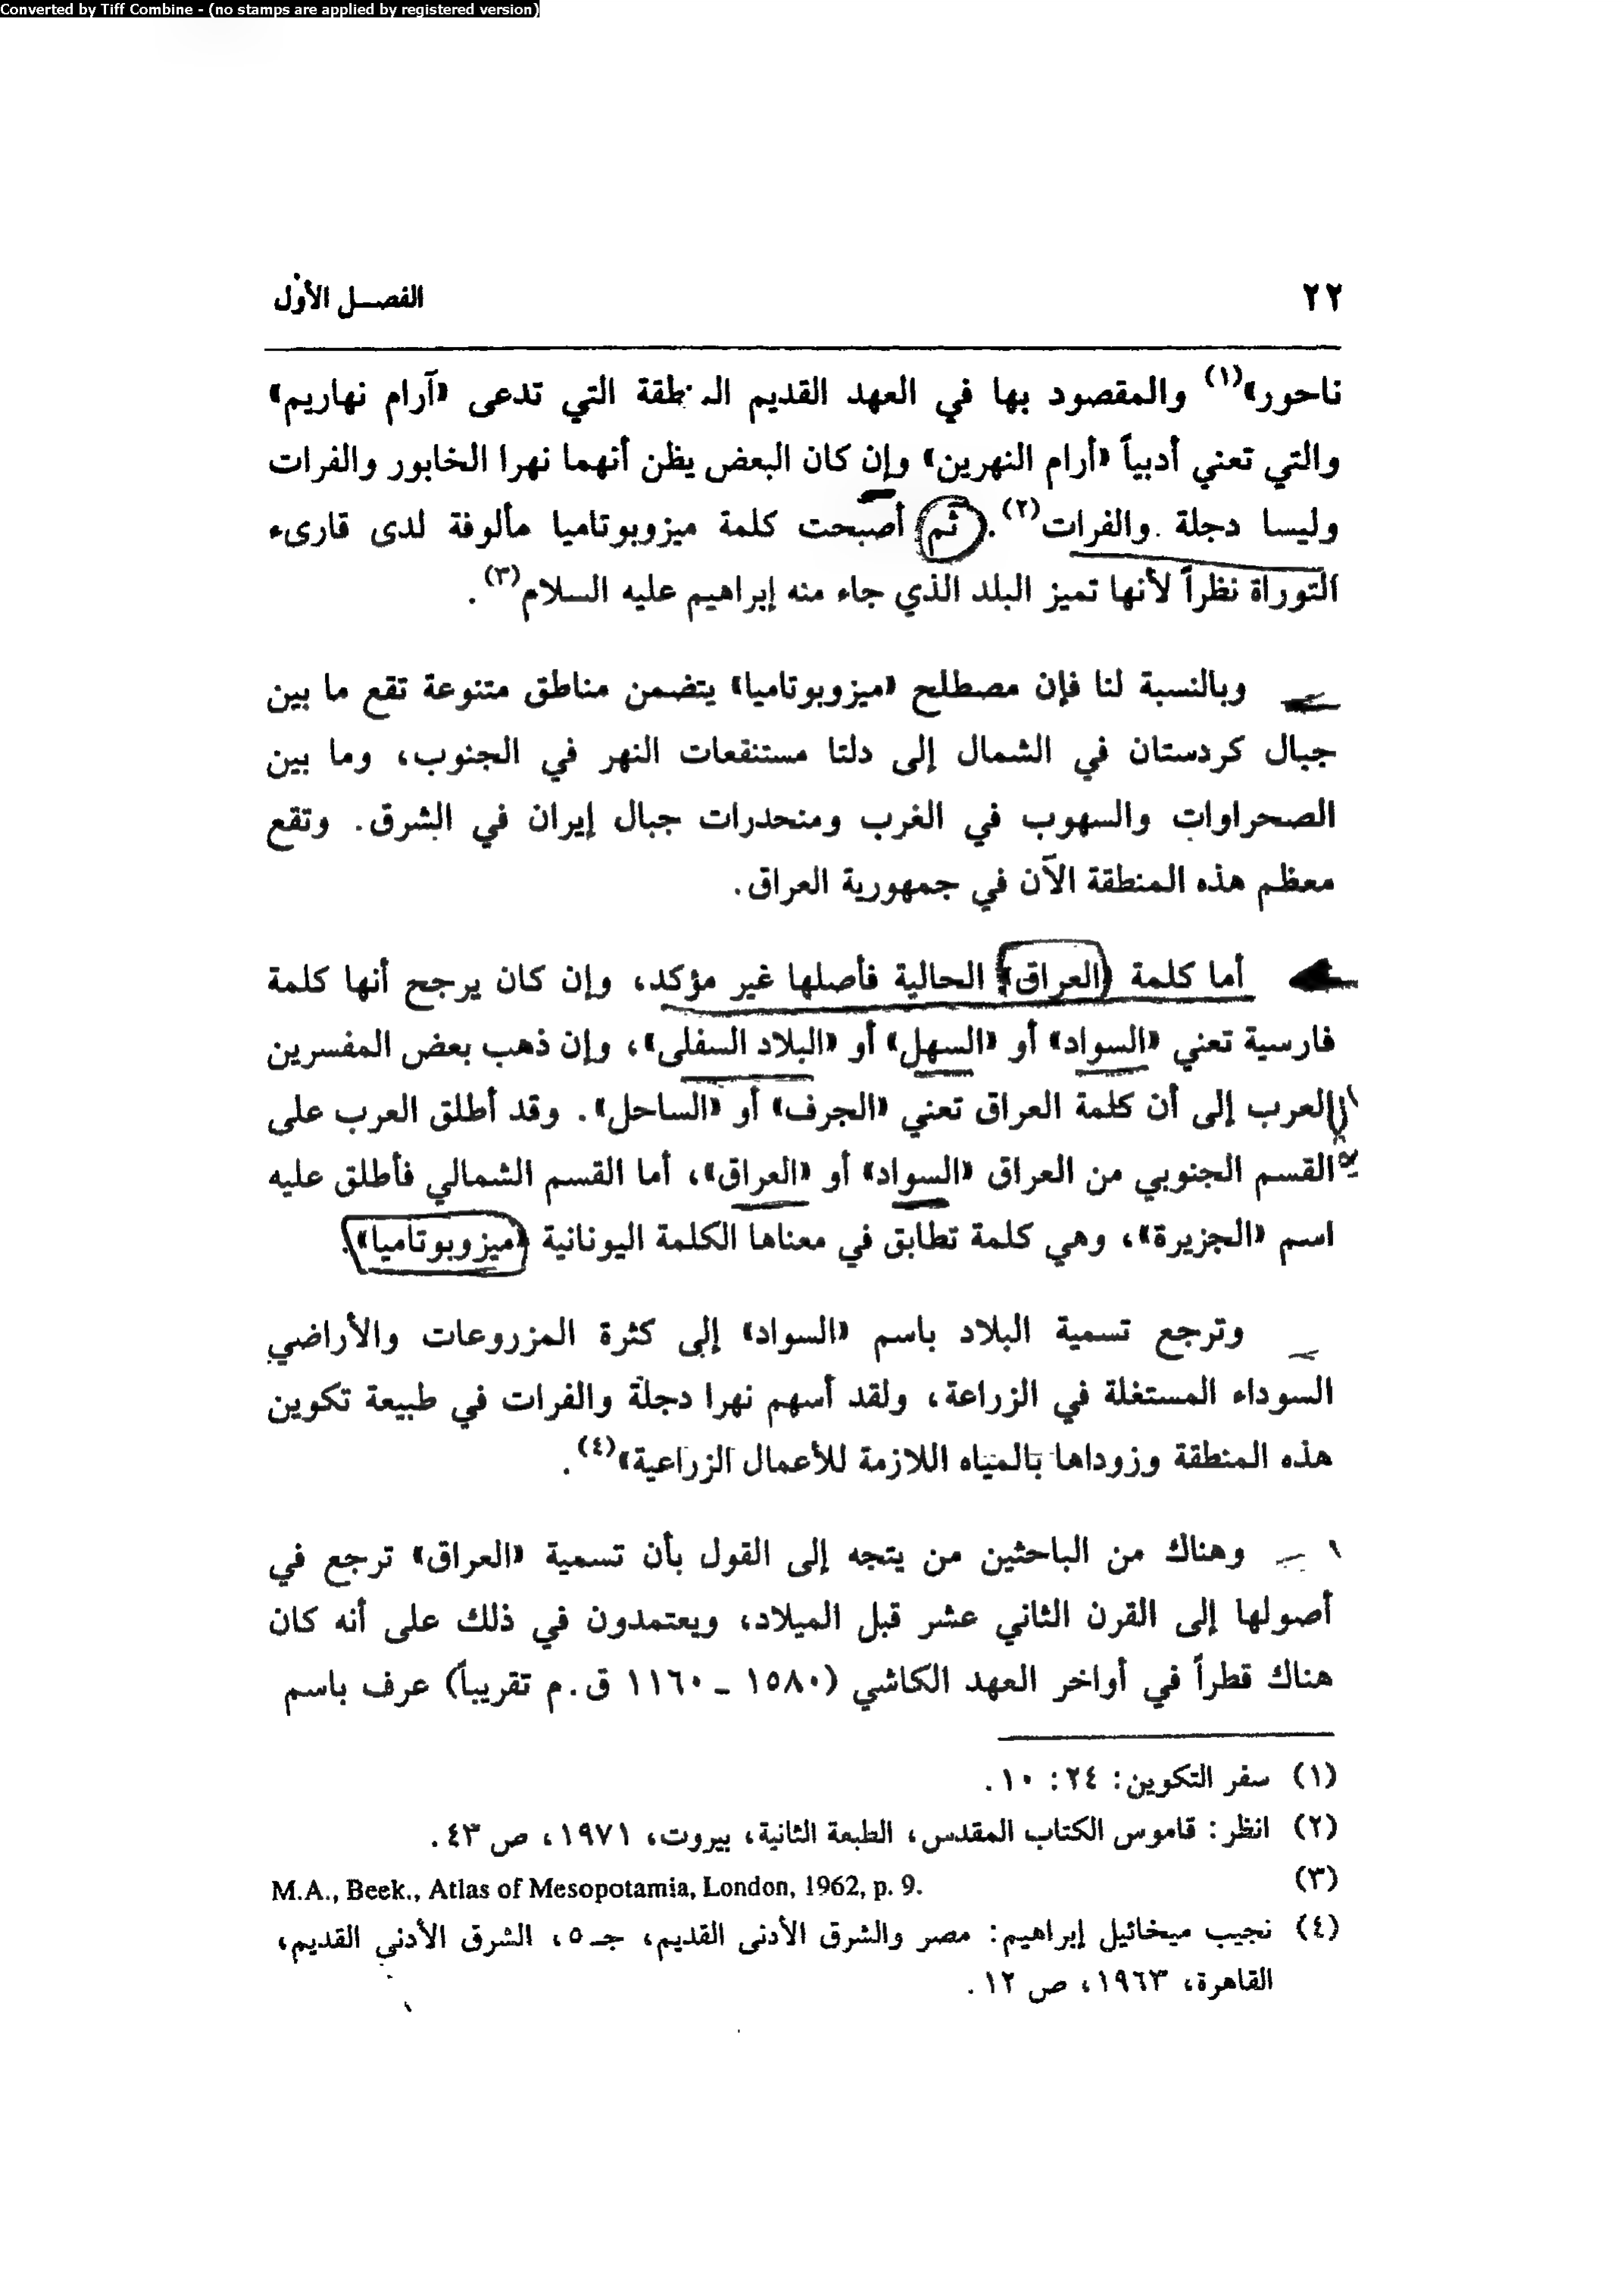 Converted by Tiff Combine - (no stamps are applied by registered version)
٢٢ الفصـل الأول
ناحور»(١) والمقصود بها في العهد القديم المنطقة التي تدعى «آرام نهاريم»
والتي تعني أدبياً «أرام النهرين» وإن كان البعض يظن أنهما نهرا الخابور والفرات
وليسا دجلة والفرات(٢). ثم أصبحت كلمة ميزوبوتاميا مألوفة لدى قارىء
التوراة نظراً لأنها تميز البلد الذي جاء منه إبراهيم عليه السلام(٣).
وبالنسبة لنا فإن مصطلح «ميزوبوتاميا» يتضمن مناطق متنوعة تقع ما بين
جبال كردستان في الشمال إلى دلتا مستنقعات النهر في الجنوب، وما بين
الصحراوات والسهوب في الغرب ومنحدرات جبال إيران في الشرق. وتقع
معظم هذه المنطقة الآن في جمهورية العراق.
أما كلمة «العراق» الحالية فأصلها غير مؤكد، وإن كان يرجح أنها كلمة
فارسية تعني «السواد» أو «السهل» أو «البلاد السفلى»، وإن ذهب بعض المفسرين
العرب إلى أن كلمة العراق تعني «الجرف» أو «الساحل». وقد أطلق العرب على
القسم الجنوبي من العراق «السواد» أو «العراق»، أما القسم الشمالي فأطلق عليه
اسم «الجزيرة»، وهي كلمة تطابق في معناها الكلمة اليونانية «ميزوبوتاميا».
وترجع تسمية البلاد باسم «السواد» إلى كثرة المزروعات والأراضي
السوداء المستغلة في الزراعة، ولقد أسهم نهرا دجلة والفرات في طبيعة تكوين
هذه المنطقة وزوداها بالمياه اللازمة للأعمال الزراعية»(٤).
وهناك من الباحثين من يتجه إلى القول بأن تسمية «العراق» ترجع في
أصولها إلى القرن الثاني عشر قبل الميلاد، ويعتمدون في ذلك على أنه كان
هناك قطراً في أواخر العهد الكاشي (١٥٨٠ - ١١٦٠ ق.م تقريباً) عرف باسم
(١) سفر التكوين: ٢٤: ١٠.
(٢) انظر: قاموس الكتاب المقدس، الطبعة الثانية، بيروت، ١٩٧١، ص ٤٣.
(٣) M.A., Beek., Atlas of Mesopotamia, London, 1962, p. 9.
(٤) نجيب ميخائيل إبراهيم: مصر والشرق الأدنى القديم، جـ ٥، الشرق الأدنى القديم،
القاهرة، ١٩٦٣، ص ١٢.